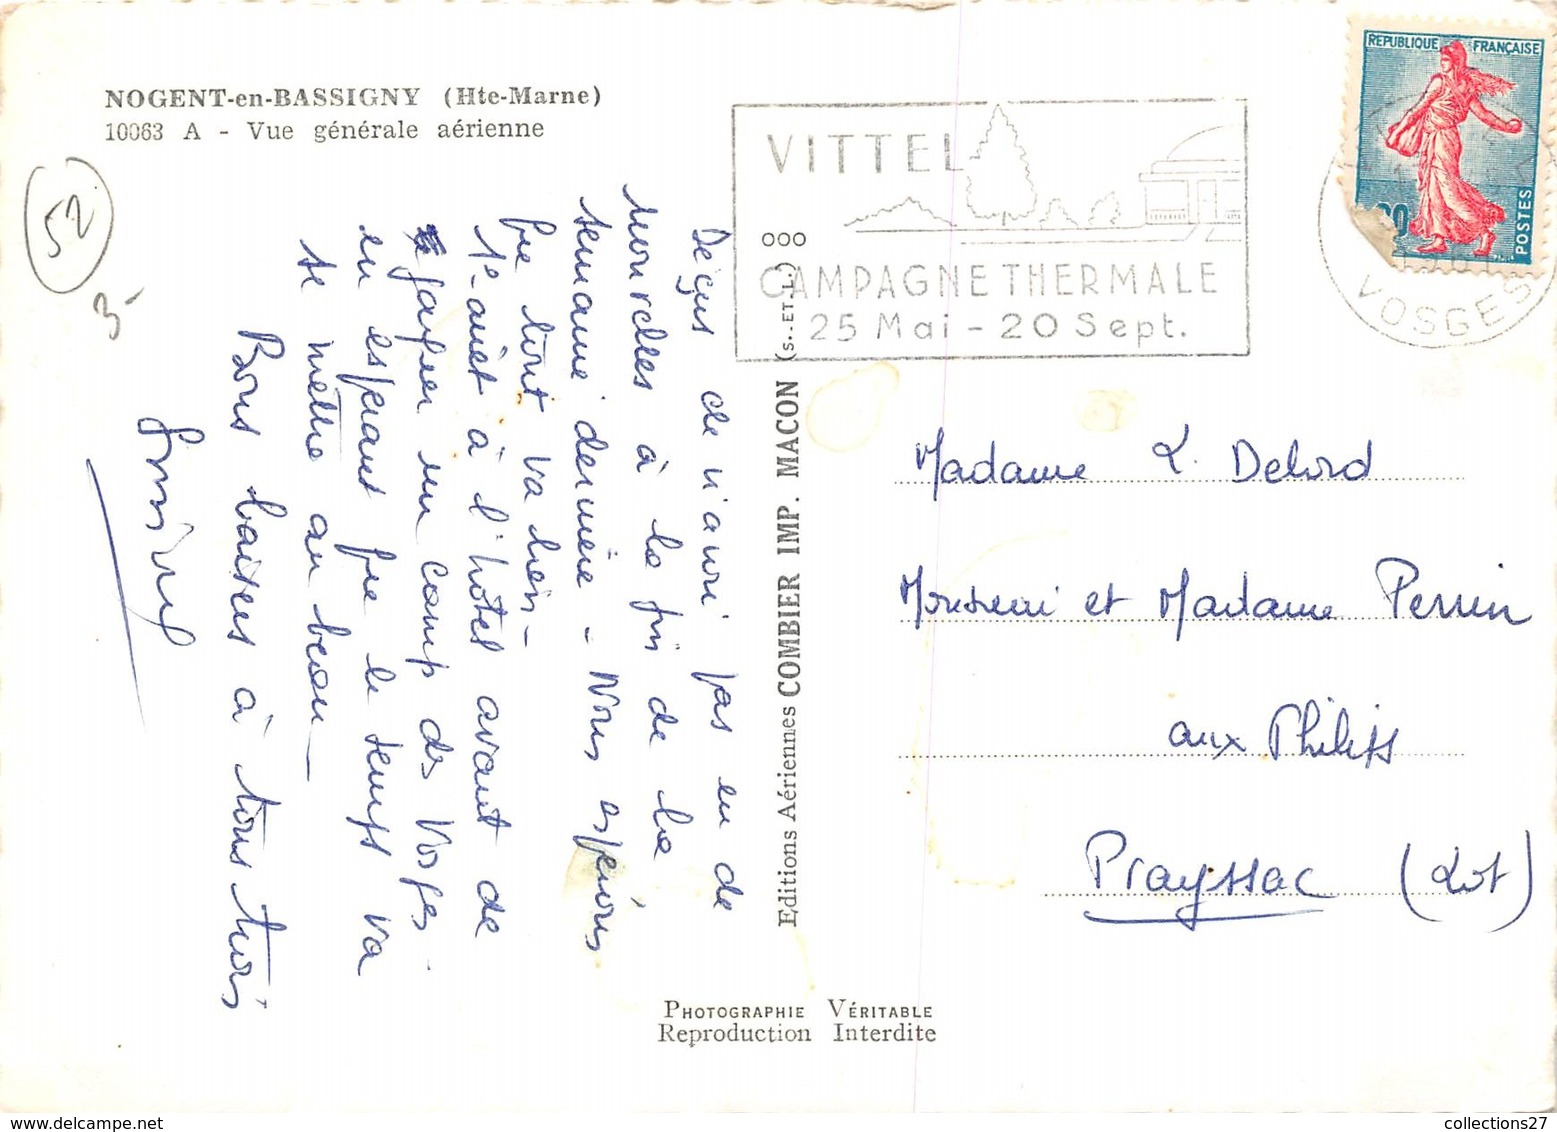 NOGENT-en-BASSIGNY (Hte-Marne)
10063 A - Vue générale aérienne
52
3-
Déçus de n'avoir pas eu de
nouvelles à la fin de la
semaine dernière - Nous espérons
que tout va bien -
1er arrêt à l'hôtel avant de
gagner un camp des Vosges
en espérant que le temps va
se mettre au beau -
Bons baisers à tous trois
VITTEL
CAMPAGNE THERMALE
25 Mai - 20 Sept.
REPUBLIQUE FRANÇAISE
POSTES
VOSGES
Editions Aériennes COMBIER IMP. MACON (S.-ET-L.)
Madame L. Delord
Monsieur et Madame Perrin
aux Philips
Prayssac (Lot)
PHOTOGRAPHIE VÉRITABLE
Reproduction Interdite
collections27